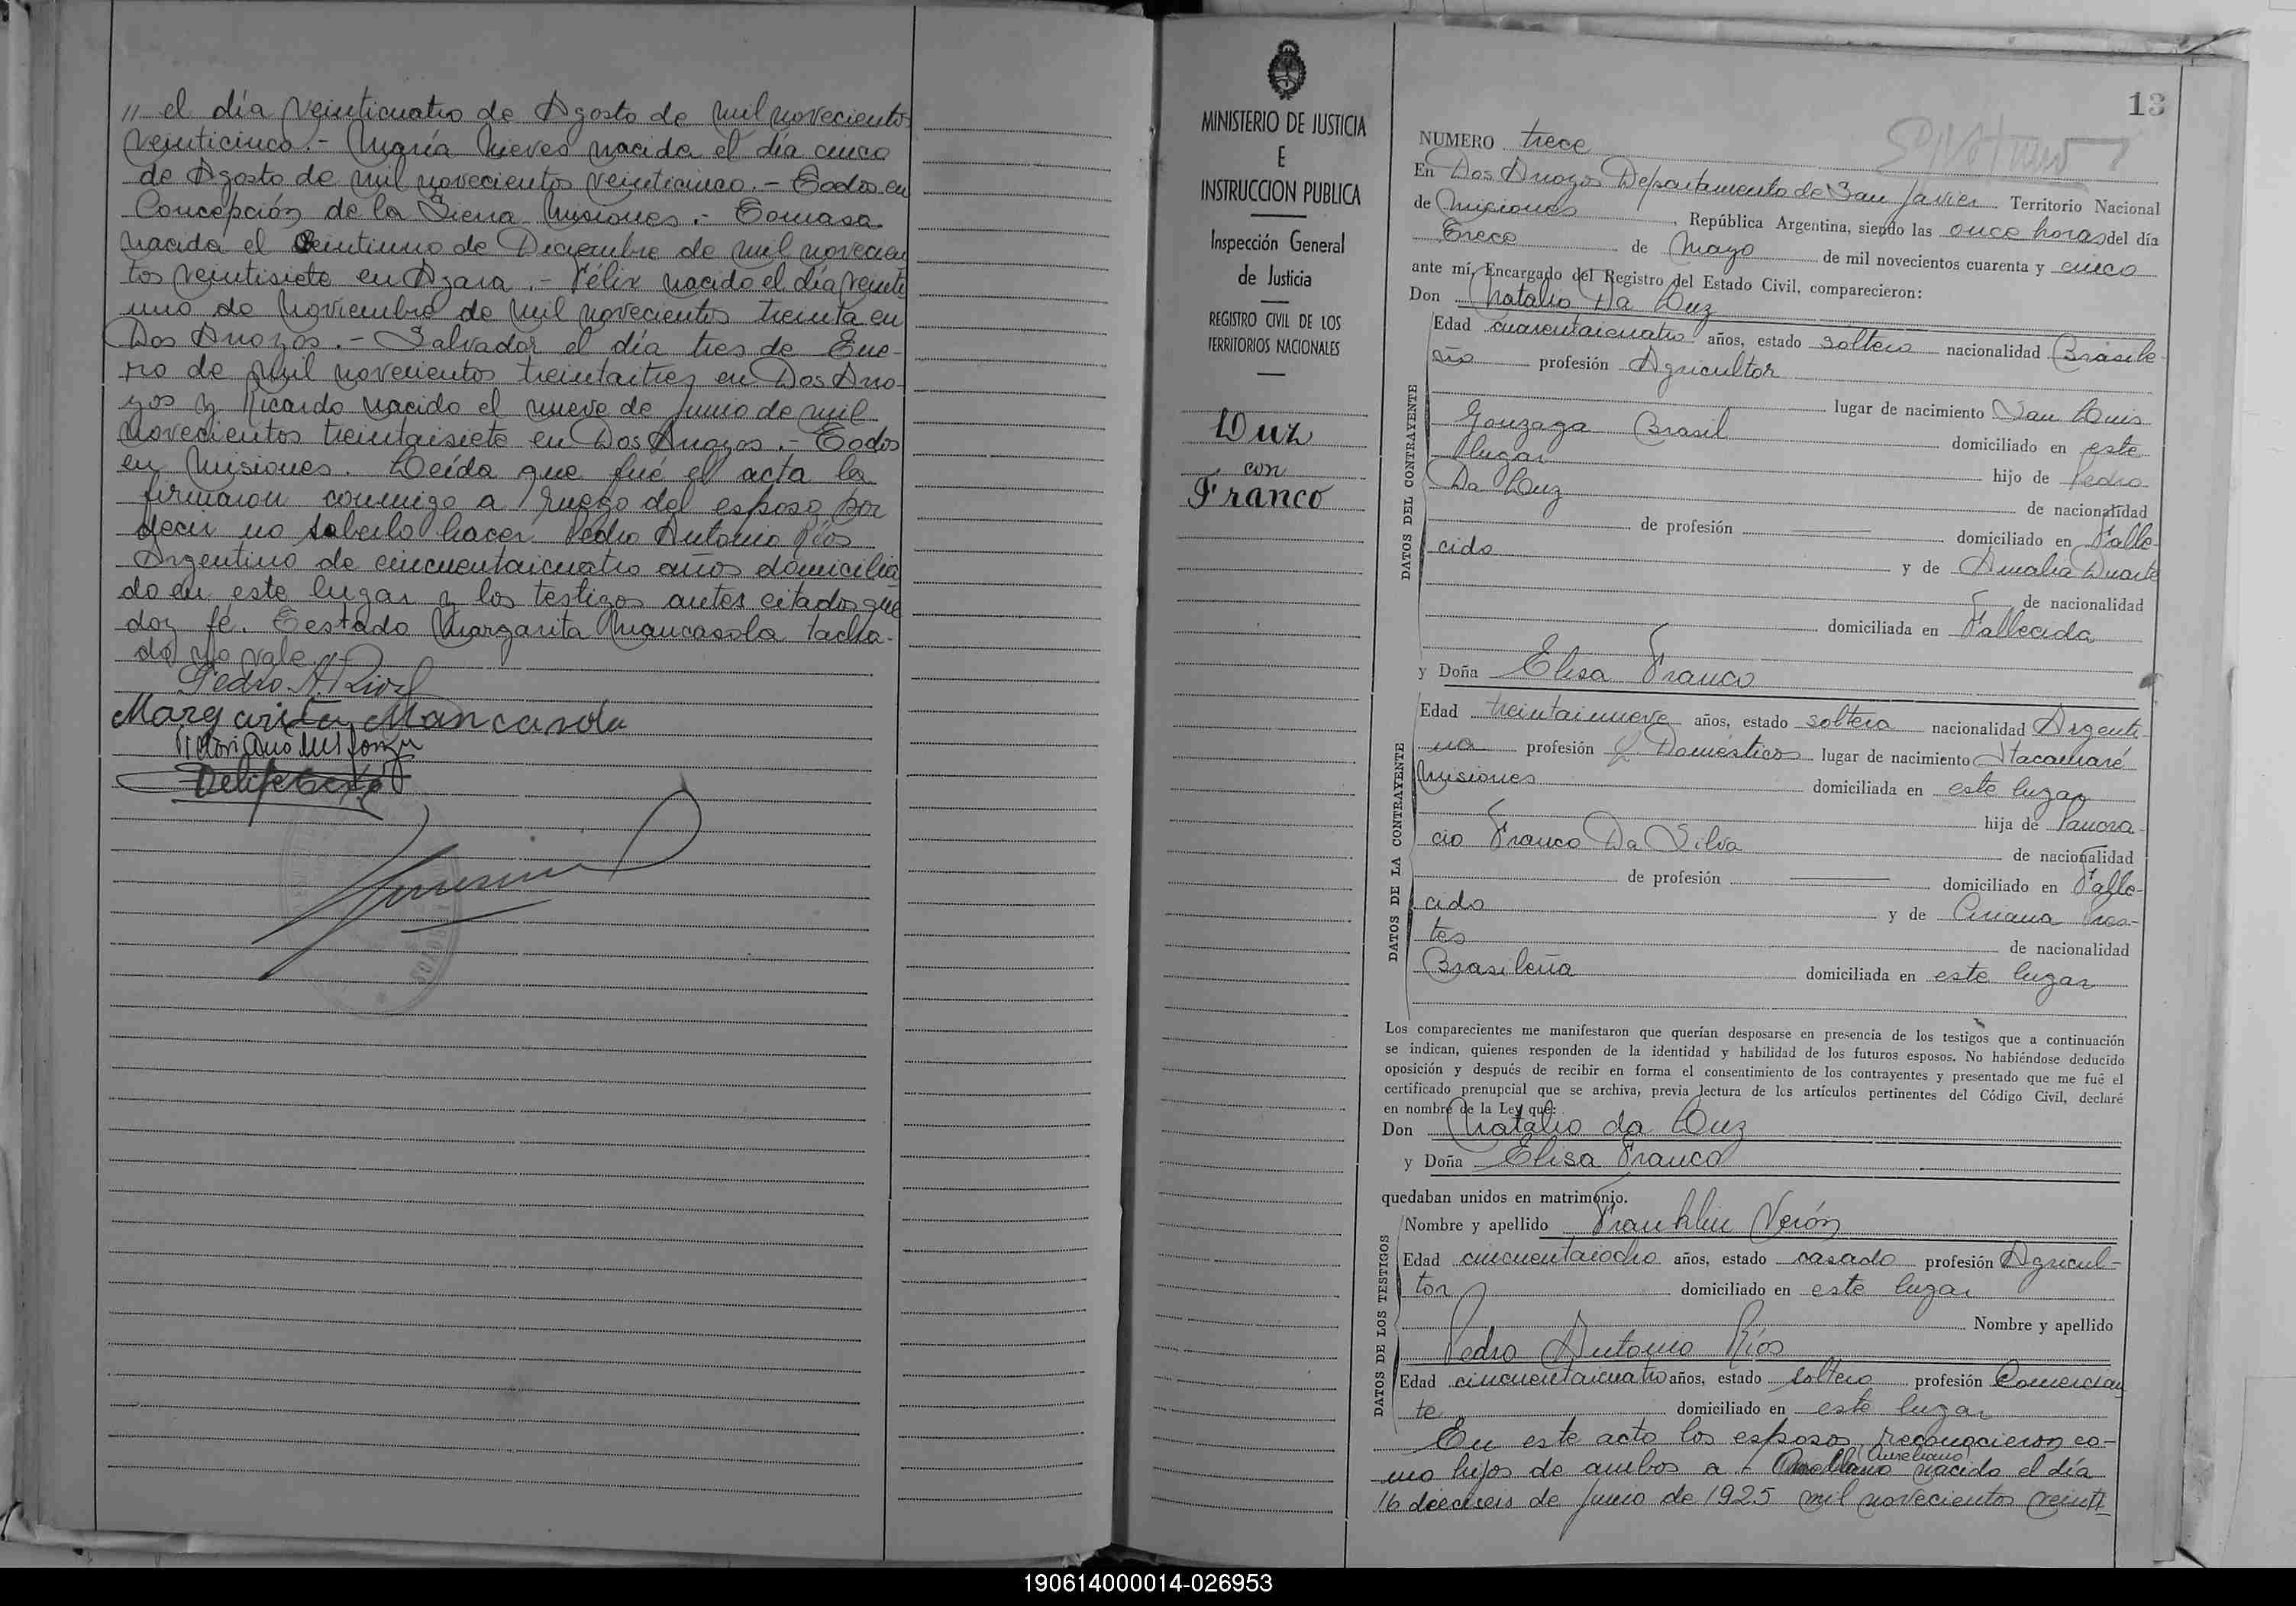 // el día veinticuatro de Agosto de mil novecientos
veinticinco.- María Nieves nacida el día cinco
de Agosto de mil novecientos veinticinco.- Todos en
Concepción de la Sierra Misiones.- Tomasa
nacida el veintiuno de Diciembre de mil novecien
tos veintisiete en Azara.- Félix nacido el día veinti
uno de Noviembre de mil novecientos treinta en
Dos Arroyos.- Salvador el día tres de Ene-
ro de mil novecientos treintaitres en Dos Arro-
yos y Ricardo nacido el nueve de Junio de mil
novecientos treintaisiete en Dos Arroyos.- Todos
en Misiones. Leída que fué el acta la
firmaron conmigo a ruego del esposo por
decir no saberlo hacer Pedro Antonio Ríos
Argentino de cincuentaicuatro años domicilia
do en este lugar y los testigos antes citados que
doy fé. Testado Margarita Mancasola tacha-
do no vale
Pedro A. Rios
Margarita Mancasola
MINISTERIO DE JUSTICIA
E
INSTRUCCION PUBLICA
Inspección General
de Justicia
REGISTRO CIVIL DE LOS
TERRITORIOS NACIONALES
Luz
con
Franco
13
NUMERO trece
En Dos Arroyos Departamento de San Javier Territorio Nacional
de Misiones, República Argentina, siendo las once horas del día
Trece de Mayo de mil novecientos cuarenta y cinco
ante mí, Encargado del Registro del Estado Civil, comparecieron:
Don Natalio Da Luz
DATOS DEL CONTRAYENTE
Edad cuarentaicuatro años, estado soltero nacionalidad Brasile-
ño profesión Agricultor
lugar de nacimiento San Luis
Gonzaga Brasil domiciliado en este
lugar hijo de Pedro
Da Luz de nacionalidad
de profesión —— domiciliado en Falle-
cido y de Amalia Duarte
de nacionalidad
domiciliada en Fallecida
y Doña Elisa Franco
DATOS DE LA CONTRAYENTE
Edad treintainueve años, estado soltera nacionalidad Argenti-
na profesión Q. Domésticos lugar de nacimiento Itacaruaré
Misiones domiciliada en este lugar
hija de Pancra-
cio Franco Da Silva de nacionalidad
de profesión —— domiciliado en Falle-
cido y de Ciriana Pres-
tes de nacionalidad
Brasileña domiciliada en este lugar
Los comparecientes me manifestaron que querían desposarse en presencia de los testigos que a continuación
se indican, quienes responden de la identidad y habilidad de los futuros esposos. No habiéndose deducido
oposición y después de recibir en forma el consentimiento de los contrayentes y presentado que me fué el
certificado prenupcial que se archiva, previa lectura de los artículos pertinentes del Código Civil, declaré
en nombre de la Ley que:
Don Natalio da Luz
y Doña Elisa Franco
quedaban unidos en matrimonio.
DATOS DE LOS TESTIGOS
Nombre y apellido Franklin Verón
Edad cincuentaiocho años, estado casado profesión Agricul-
tor domiciliado en este lugar
Nombre y apellido
Pedro Antonio Ríos
Edad cincuentaicuatro años, estado soltero profesión Comercian
te domiciliado en este lugar
En este acto los esposos reconocieron co-
mo hijos de ambos a: Aureliano nacido el día
16 dieciseis de Junio de 1925 mil novecientos veinti
190614000014-026953